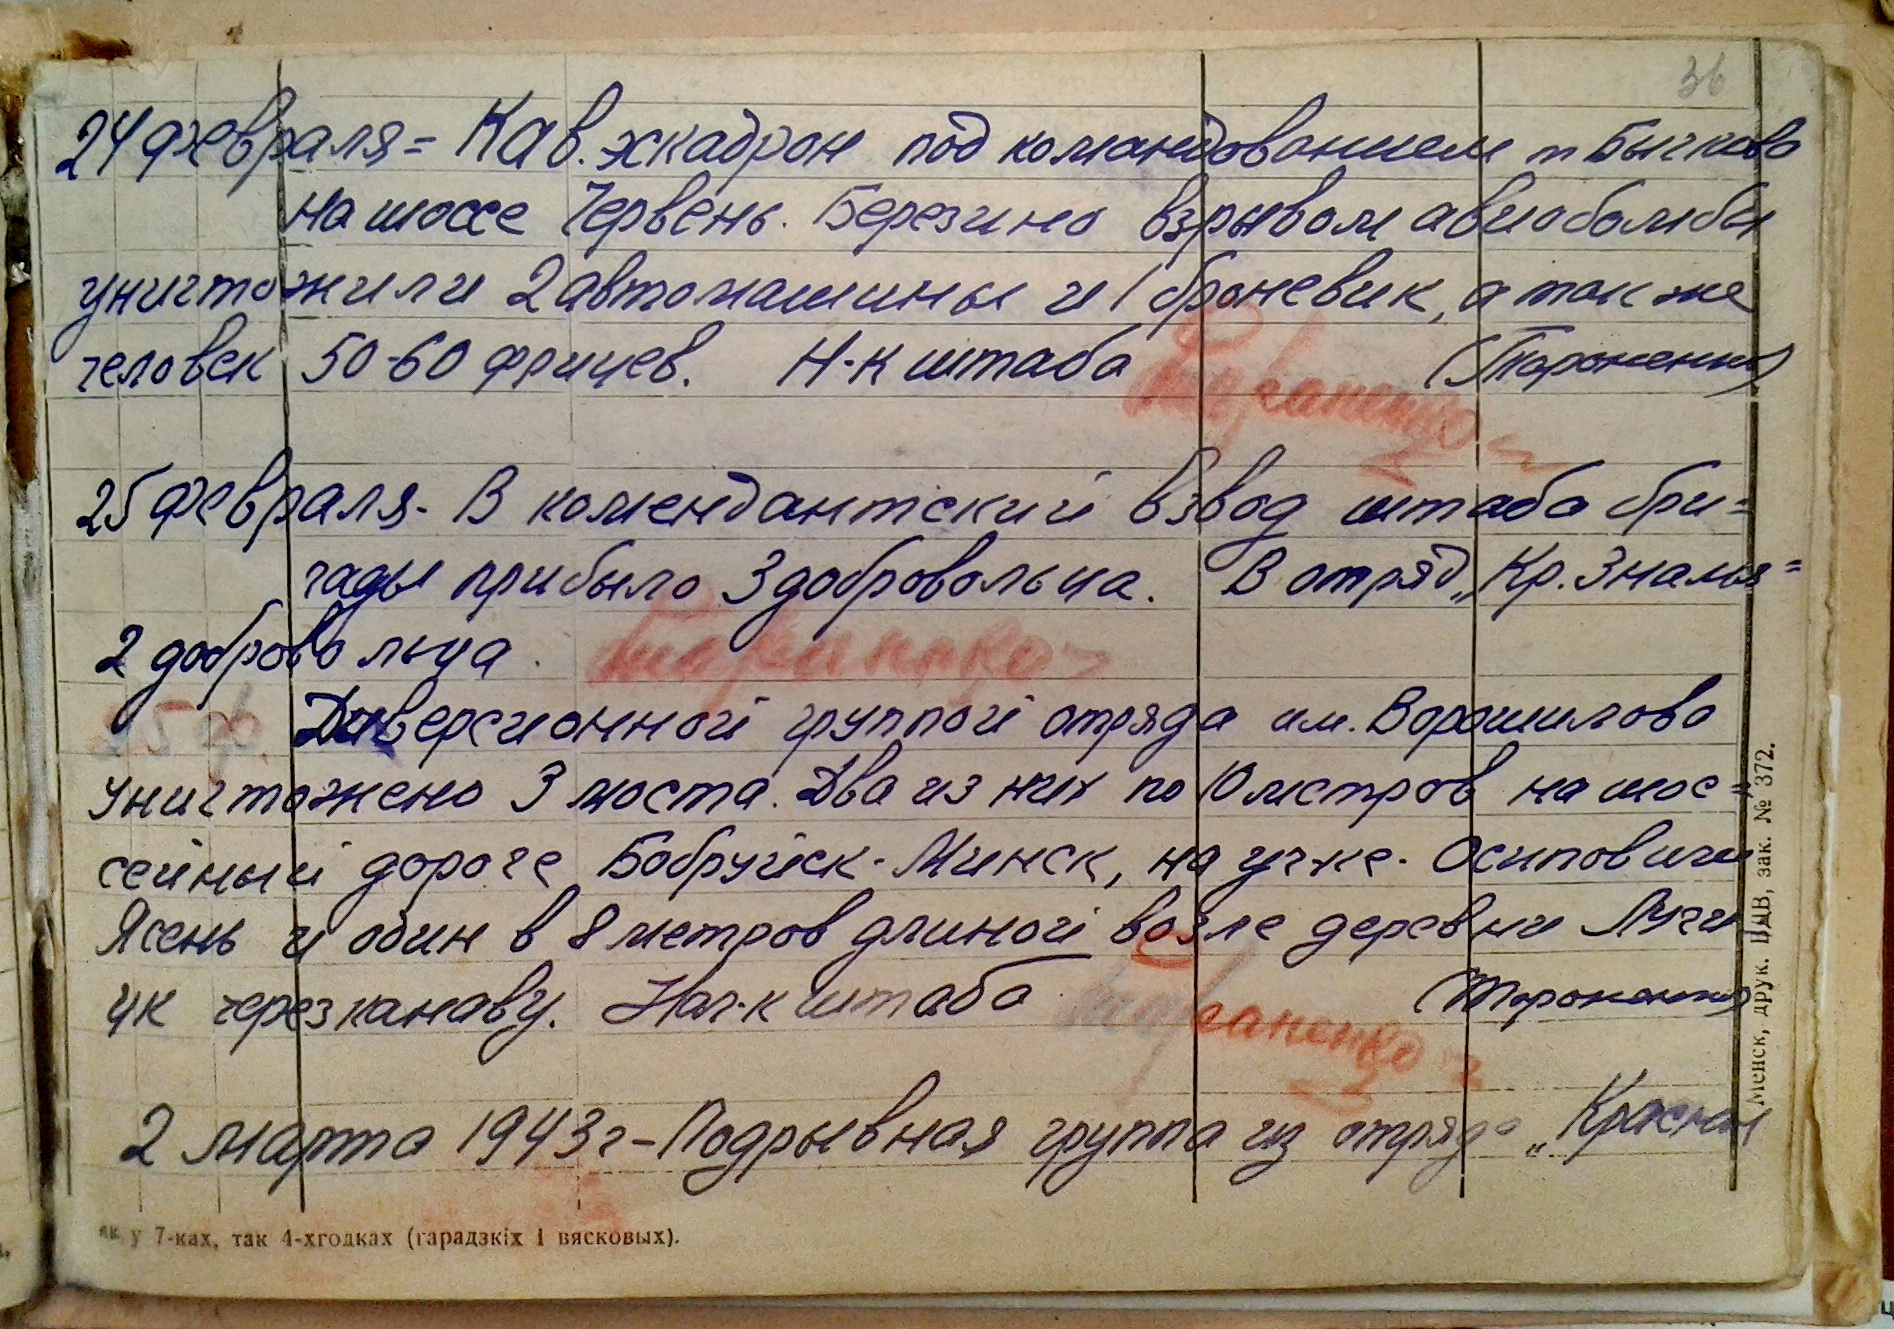 36
24 февраля= Кав. эскадрон под командованием т Бычкова
на шоссе Червень. Березино взрывом авиабомбы
уничтожили 2 автомашины и 1 броневик, а так же
человек 50-60 фрицев. Н-к штаба (Тараненко)
Тараненко
25 февраля. В комендантский взвод штаба бри=
гады прибыло 3 добровольца. В отряд „Кр. Знамя=
2 добровольца.
25 ф. Диверсионной группой отряда им. Ворошилова
уничтожено 3 моста. Два из них по 10 метров на шос=
сейный дороге Бобруйск-Минск, на уч-ке. Осиповичи
Ясень и один в 8 метров длиной возле деревни Лучи
цк через канаву. Нач-к штаба (Тараненко)
Тараненко
2 марта 1943 г – Подрывная группа из отряда „Красный
як у 7-ках, так 4-хгодках (гарадзкіх і вясковых).
Менск, друк. ЦДВ, зак. № 372.